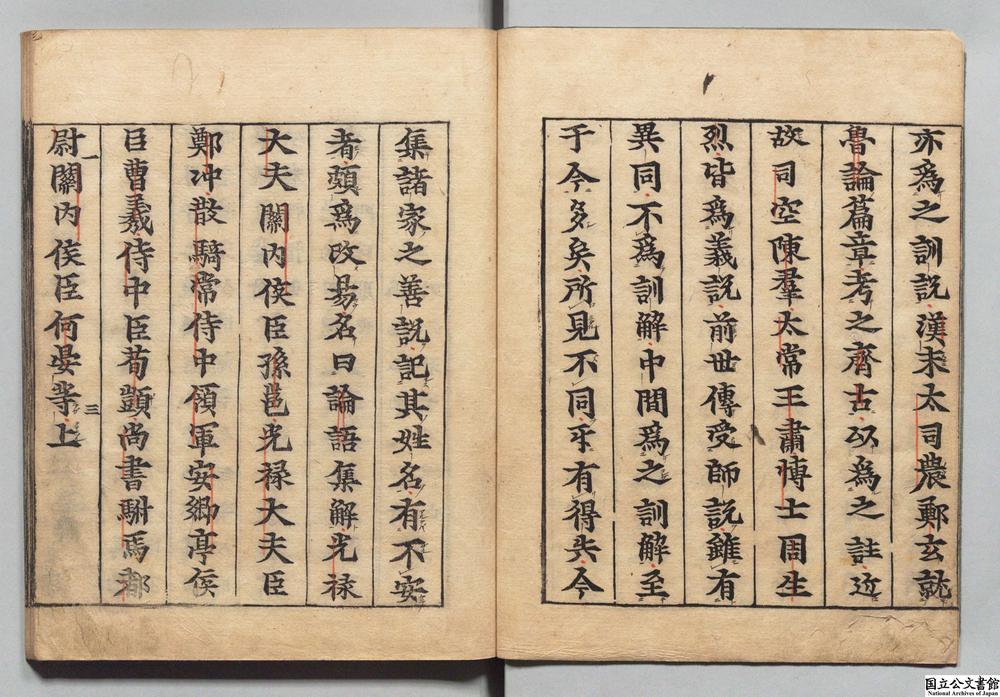 亦爲之訓説漢末太司農鄭玄就
魯論篇章考之齊古以爲之註近
故司空陳羣太常王肅博士周生
烈皆爲義説前世傳受師説雖有
異同不爲訓解中間爲之訓解至
于今多矣所見不同乎有得失今
集諸家之善説記其姓名有不安
者頗爲改易名曰論語集解光禄
大夫關内侯臣孫邕光禄大夫臣
鄭冲散騎常侍中領軍安郷亭侯
臣曹羲侍中臣荀顗尚書駙馬都
尉關内侯臣何晏等上
国立公文書館
National Archives of Japan